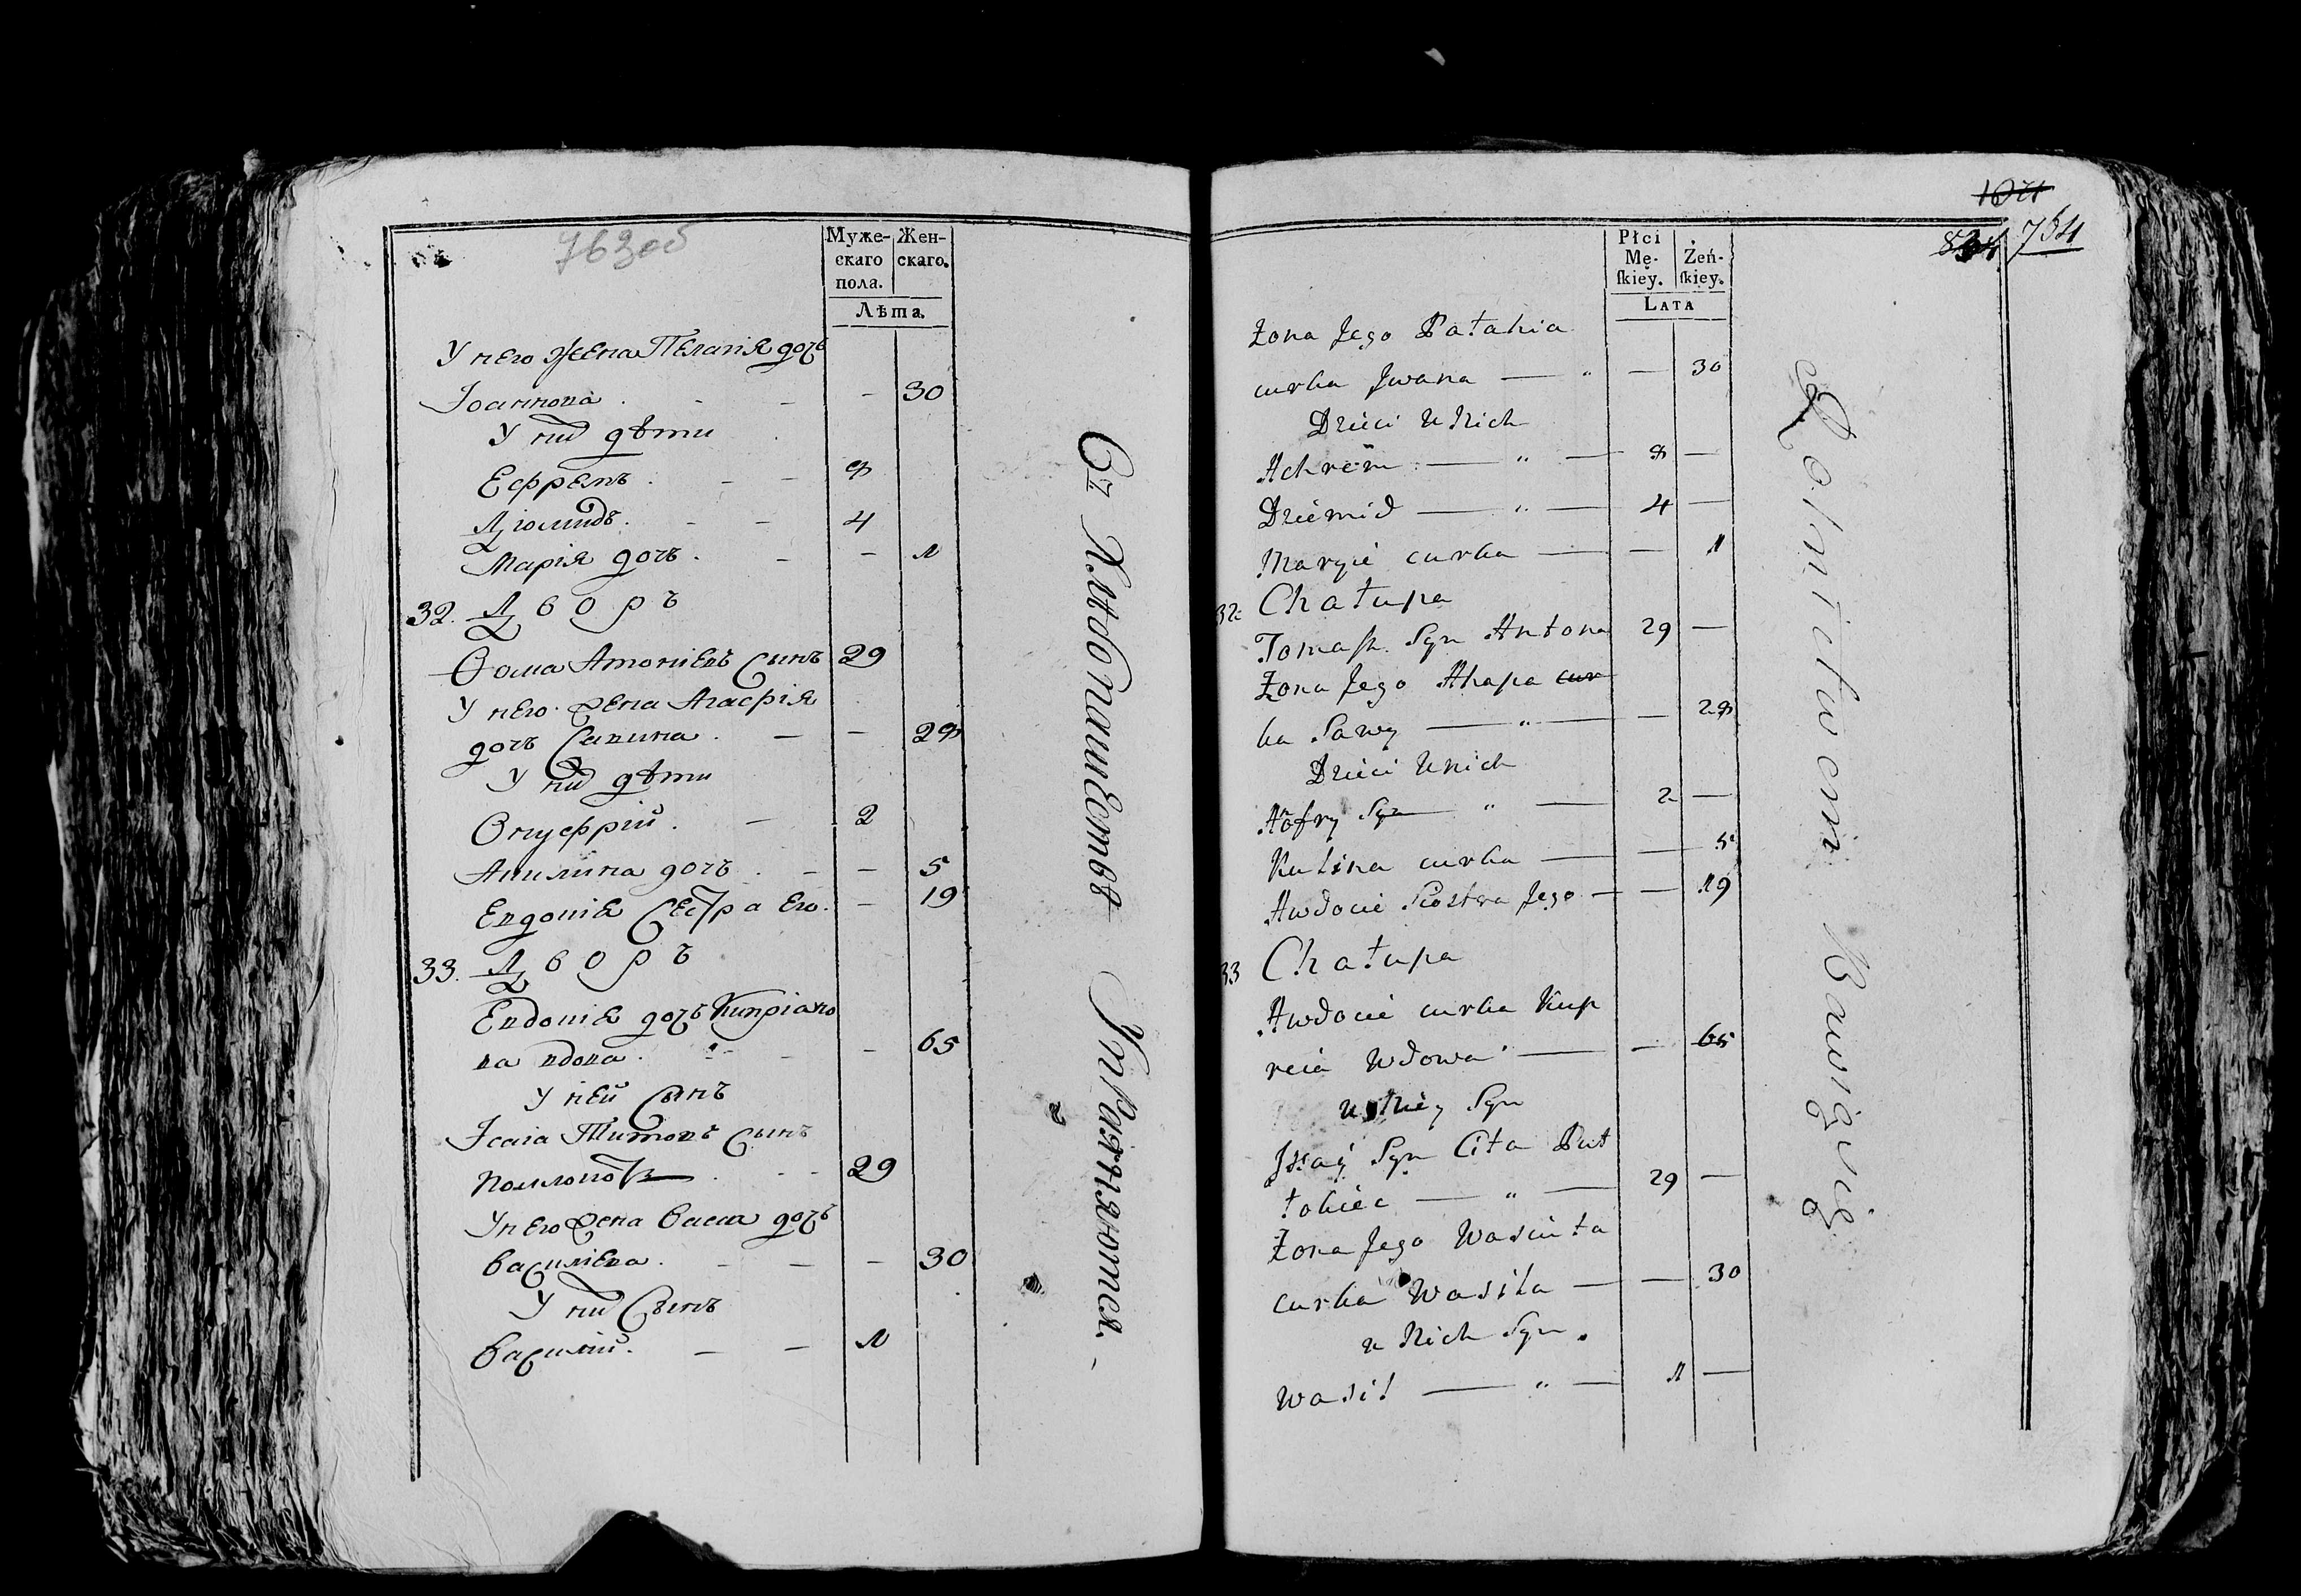 763об
Муже-
скаго
пола.
Жен-
скаго.
Лѣта.
У него Жена Пелагія дочь
Іоаннова . - - - 30
У них дѣти
Ефремъ . - - 8
Діомидъ . - - 4
Марія дочь . - - 1
32. Дворъ
Ѳома Антоніевъ Сынъ 29
У него жена Агафія
дочь Савина . - - 28
У них дѣти
Онуфрій . - 2
Акилина дочь . - - 5
Евдокія Сестра его . - 19
33. Дворъ
Евдокія дочь Кипріано
ва вдова . - - - 65
У ней Сынъ
Ісаіа Титовъ Сынъ
29
У него жена Васса дочь
Василіева . - - - 30
У них Сынъ
Василій . - - 1
Съ Хлѣбопашества Упражняются.
1071
764
Płci
Mę-
ſkiey.
Żeń-
ſkiey.
Lata
Żona Jego Pałahia
curka Jwana — " — 30
Dzieci u Nich
Achrem — " — 8 —
Dziemid — " — 4 —
Maryie curka — — 1
32 Chałupa
Tomaſz Syn Antona 29 —
Żona Jego Ahapa cur
ka Sawy — " — — 28
Dzieci u nich
Anofry Syn — " — 2 —
Kulina curka — — 5
Awdocie Siostra Jego — — 19
33 Chałupa
Awdocie curka Kup
reia Wdowa — — 65
u Niey Syn
Jsay Syn Cita Put
łokiec — " — 29 —
Żona Jego Wasiuta
curka Wasila — — 30
u Nich Syn.
Wasil — " — 1 —
Rolnictwem Bawią się